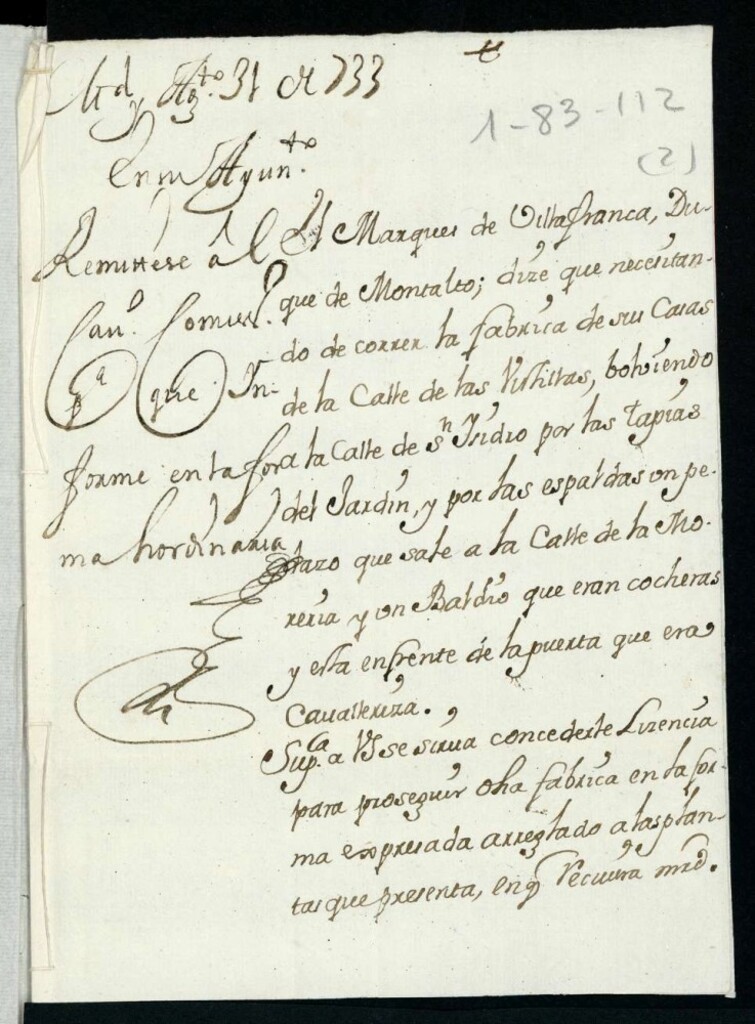 Md y Ag.to 31 de 733
1-83-112
(2)
En su Ayun.to
Remitese al
Cau.o Comiss.o
p.a que In-
forme en la for-
ma hordinaria
El Marques de Villafranca, Du-
que de Montalto; dize que necesitan-
do de correr la fabrica de sus Casas
de la Calle de las Vistillas, bolviendo
a la Calle de S.n Ysidro por las tapias
del Jardin, y por las espaldas un pe-
dazo que sale a la Calle de la Mo-
reria y un Baldio que eran cocheras
y esta enfrente de la puerta que era
Cavalleriza.
Sup.ca a VS se sirua concederle Lizencia
para proseguir dha fabrica en la for-
ma expresada arreglado a las plan-
tas que presenta, en q Reciuira mrd.